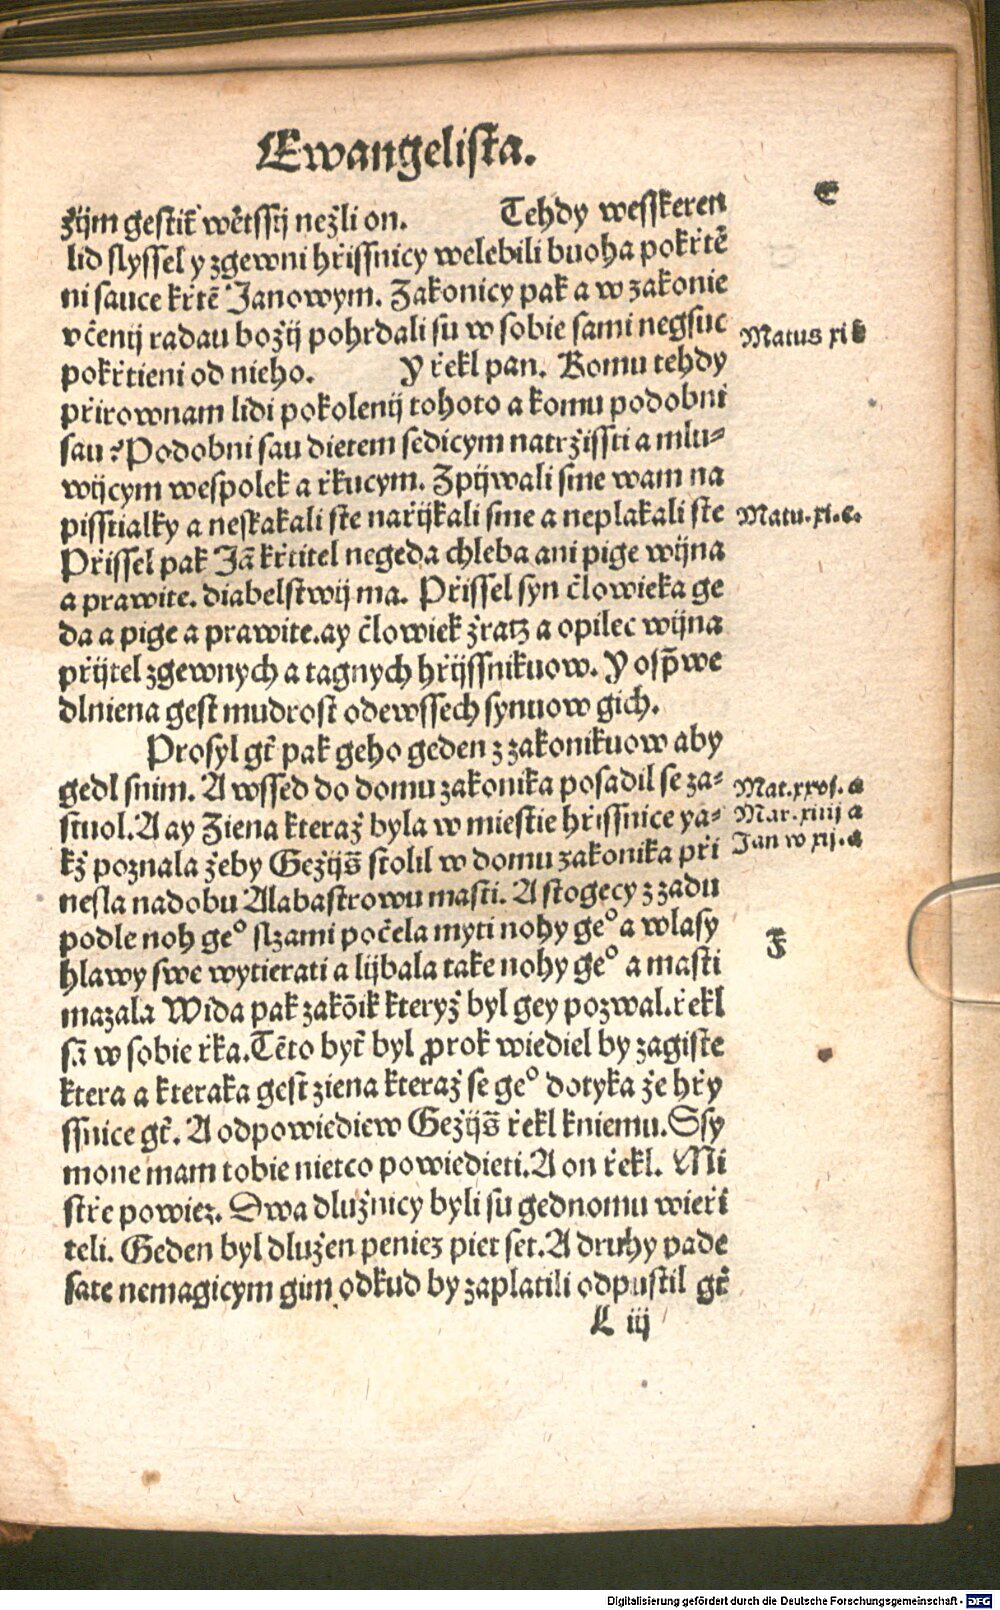 Ewangelista.
E
žijm gestit̃ wětssij nežli on. Tehdy wesskeren
lid slyssel y zgewni hřissnicy welebili buoha pokřtě
ni sauce křtē Janowym. Zakonicy pak a w zakonie
včenij radau božij pohrdali su w sobie sami negsuc
pokřtieni od nieho. Y řekl pan. Komu tehdy
přirownam lidi pokolenij tohoto a komu podobni
sau? Podobni sau dietem sedicym natržissti a mlu-
wijcym wespolek a řkucym. Zpijwali sme wam na
pisstialky a neskakali ste nařijkali sme a neplakali ste
Přissel pak Jā křtitel negeda chleba ani pige wijna
a prawite. diabelstwij ma. Přissel syn člowieka ge
da a pige a prawite. ay člowiek žratz a opilec wijna
přijtel zgewnych a tagnych hřijssnikuow. Y osp̄we
dlniena gest mudrost odewssech synuow gich.
Prosyl gt̃ pak geho geden z zakonikuow aby
gedl snim. A wssed do domu zakonika posadil se za-
stuol. A ay Ziena kteraž byla w miestie hřissnice ya-
kž poznala žeby Gežijs̄ stolil w domu zakonika při
nesla nadobu Alabastrowu masti. A stogecy z zadu
podle noh ge° slzami počela myti nohy ge° a wlasy
hlawy swe wytierati a lijbala take nohy ge° a masti
mazala Wida pak zakōik kteryž byl gey pozwal. řekl
sā w sobie řka. Tēto byt̃ byl ꝓrok wiediel by zagiste
ktera a kteraka gest ziena kteraž se ge° dotyka že hřy
ssnice gt̃. A odpowiediew Gežijs̄ řekl kniemu. Ssy
mone mam tobie nietco powiedieti. A on řekl. Mi
stře powiez. Dwa dlužnicy byli su gednomu wieři
teli. Geden byl dlužen peniez piet set. A druhy pade
sate nemagicym gim odkud by zaplatili odpustil gt̃
L iij
Matus xi b
Matu. xi. c.
Mat. xxvj. a
Mar. xiiij a
Jan w xij. a
F
Digitalisierung gefördert durch die Deutsche Forschungsgemeinschaft - DFG